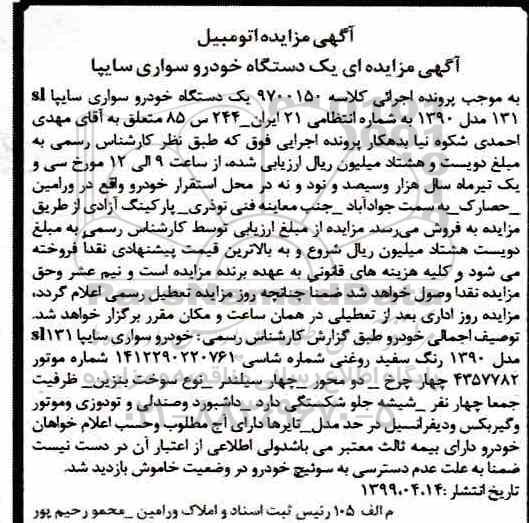 آگهی مزایده اتومبیل
آگهی مزایده ای یک دستگاه خودرو سواری سایپا
به موجب پرونده اجرائی کلاسه ۹۷۰۰۱۵۰ یک دستگاه خودرو سواری سایپا sl
۱۳۱ مدل ۱۳۹۰ به شماره انتظامی ۲۱ ایران_۲۴۴ س ۸۵ متعلق به آقای مهدی
احمدی شکوه نیا بدهکار پرونده اجرایی فوق که طبق نظر کارشناس رسمی به
مبلغ دویست و هشتاد میلیون ریال ارزیابی شده، از ساعت ۹ الی ۱۲ مورخ سی و
یک تیرماه سال هزار وسیصد و نود و نه در محل استقرار خودرو واقع در ورامین
_حصارک_به سمت جوادآباد _جنب معاینه فنی نوذری_ پارکینگ آزادی از طریق
مزایده به فروش می‌رسد. مزایده از مبلغ ارزیابی توسط کارشناس رسمی به مبلغ
دویست هشتاد میلیون ریال شروع و به بالاترین قیمت پیشنهادی نقداً فروخته
می شود و کلیه هزینه های قانونی به عهده برنده مزایده است و نیم عشر وحق
مزایده نقداً وصول خواهد شد ضمنا چنانچه روز مزایده تعطیل رسمی اعلام گردد،
مزایده روز اداری بعد از تعطیلی در همان ساعت و مکان مقرر برگزار خواهد شد.
توصیف اجمالی خودرو طبق گزارش کارشناس رسمی: خودرو سواری سایپا sl۱۳۱
مدل ۱۳۹۰ رنگ سفید روغنی شماره شاسی ۱۴۱۲۲۹۰۲۲۰۷۶۱ شماره موتور
۴۳۵۷۷۸۲ چهار چرخ _ دو محور_ چهار سیلندر_ نوع سوخت بنزین_ ظرفیت
جمعا چهار نفر _شیشه جلو شکستگی دارد_ داشبورد وصندلی و تودوزی وموتور
وگیربکس ودیفرانسیل در حد مدل_تایرها دارای آج مطلوب وحسب اعلام خواهان
خودرو دارای بیمه ثالث معتبر می باشدولی اطلاعی از اعتبار آن در دست نیست
ضمناً به علت عدم دسترسی به سوئیچ خودرو در وضعیت خاموش بازدید شد.
تاریخ انتشار: ۱۳۹۹،۰۴،۱۴
م الف ۱۰۵ رئیس ثبت اسناد و املاک ورامین _محمو رحیم پور